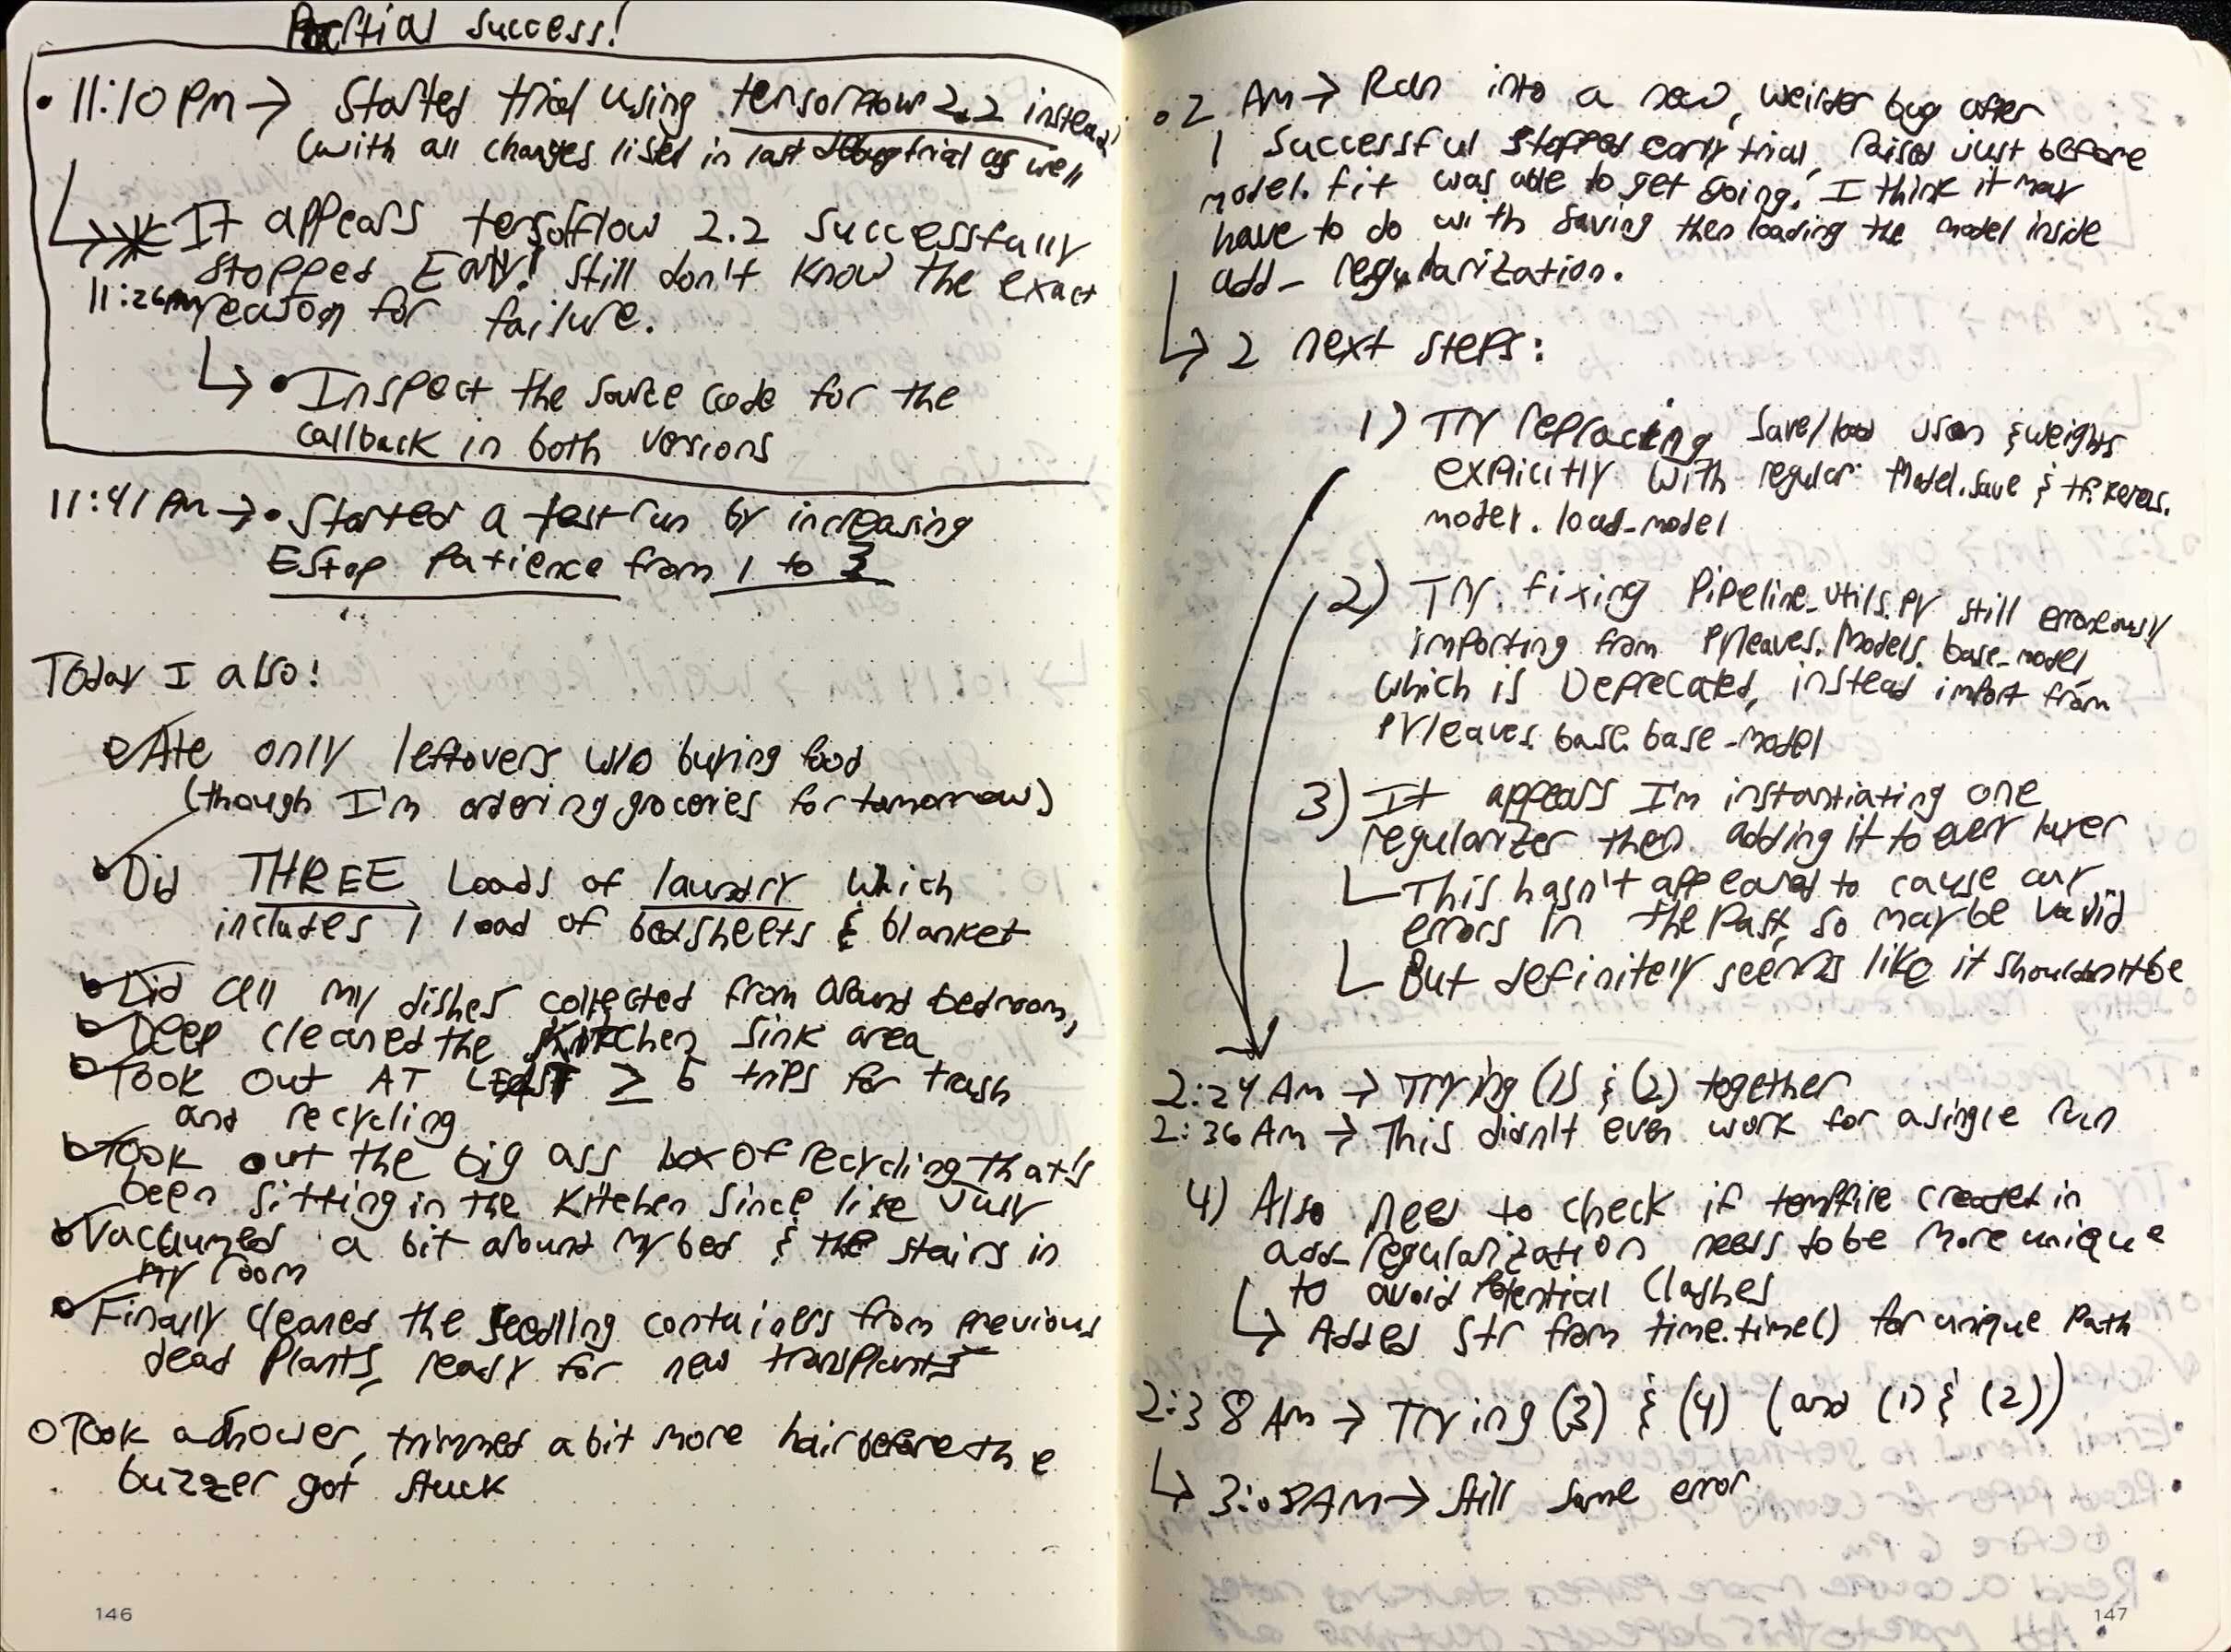 Partial Success!
• 11:10 PM → Started trial using tensorflow 2.2 instead
(with all changes listed in last debug trial as well
↳ It appears tensorflow 2.2 successfully
stopped Early! Still don't know the exact
11:26 PM reason for failure.
↳ • Inspect the source code for the
callback in both versions
11:41 PM → • Started a test run by increasing
EStop Patience from 1 to 3
Today I also!
Ate only leftovers w/o buying food
(though I'm ordering groceries for tomorrow)
Did THREE Loads of laundry which
includes 1 load of bedsheets & blanket
Did all my dishes collected from around bedroom,
Deep cleaned the Kitchen Sink area
Took out AT LEAST ≥ 5 trips for trash
and recycling
Took out the big ass box of recycling that's
been sitting in the Kitchen since like July
Vacuumed a bit around my bed & the stairs in
my room
Finally cleaned the seedling containers from previous
dead plants, ready for new transplants
Took a shower, trimmed a bit more hair before the
buzzer got stuck
146
• 2 AM → Ran into a new, weirder bug after
1 successful stopped early trial, raised just before
model.fit was able to get going. I think it may
have to do with saving then loading the model inside
add_regularization.
↳ 2 next steps:
1) Try replacing save/load json & weights
explicitly with regular Model.save & tf.keras.
model.load_model
2) Try fixing Pipeline_utils.py still erroneously
importing from Pyleaves.Models.base_model,
which is Deprecated, instead import from
Pyleaves.base.base_model
3) It appears I'm instantiating one
regularizer then adding it to every layer
↳ This hasn't appeared to cause any
errors in the past, so may be valid
↳ But definitely seems like it shouldn't be
2:24 AM → Trying (1) & (2) together
2:36 AM → This didn't even work for a single run
4) Also need to check if tempfile created in
add_regularization needs to be more unique
to avoid potential clashes
↳ Added str from time.time() for unique path
2:38 AM → Trying (3) & (4) (and (1) & (2))
↳ 3:08 AM → Still same error
147